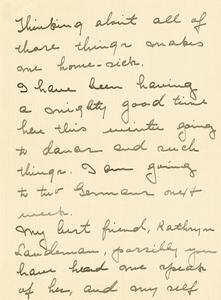 Thinking about all of
those things makes
me home-sick.
I have been having
a mighty good time
here this winter going
to dances and such
things. I am going
to two Germans next
week.
My best friend, Kathryn
Laudeman, possibly you
have head me speak
of her, and my self